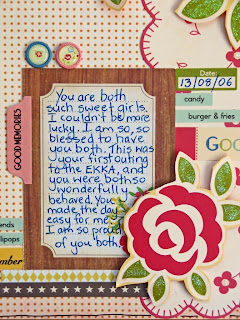 Date:
13/08/06
candy
burger & fries
GOO
GOOD MEMORIES
You are both
such sweet girls.
I couldn't be more
lucky. I am so, so
blessed to have
you both. This was
your first outing
to the EKKA, and
you were both so
wonderfully
behaved. You
made the day
easy for me.
I am so proud
of you both.
ends
lipops
mber